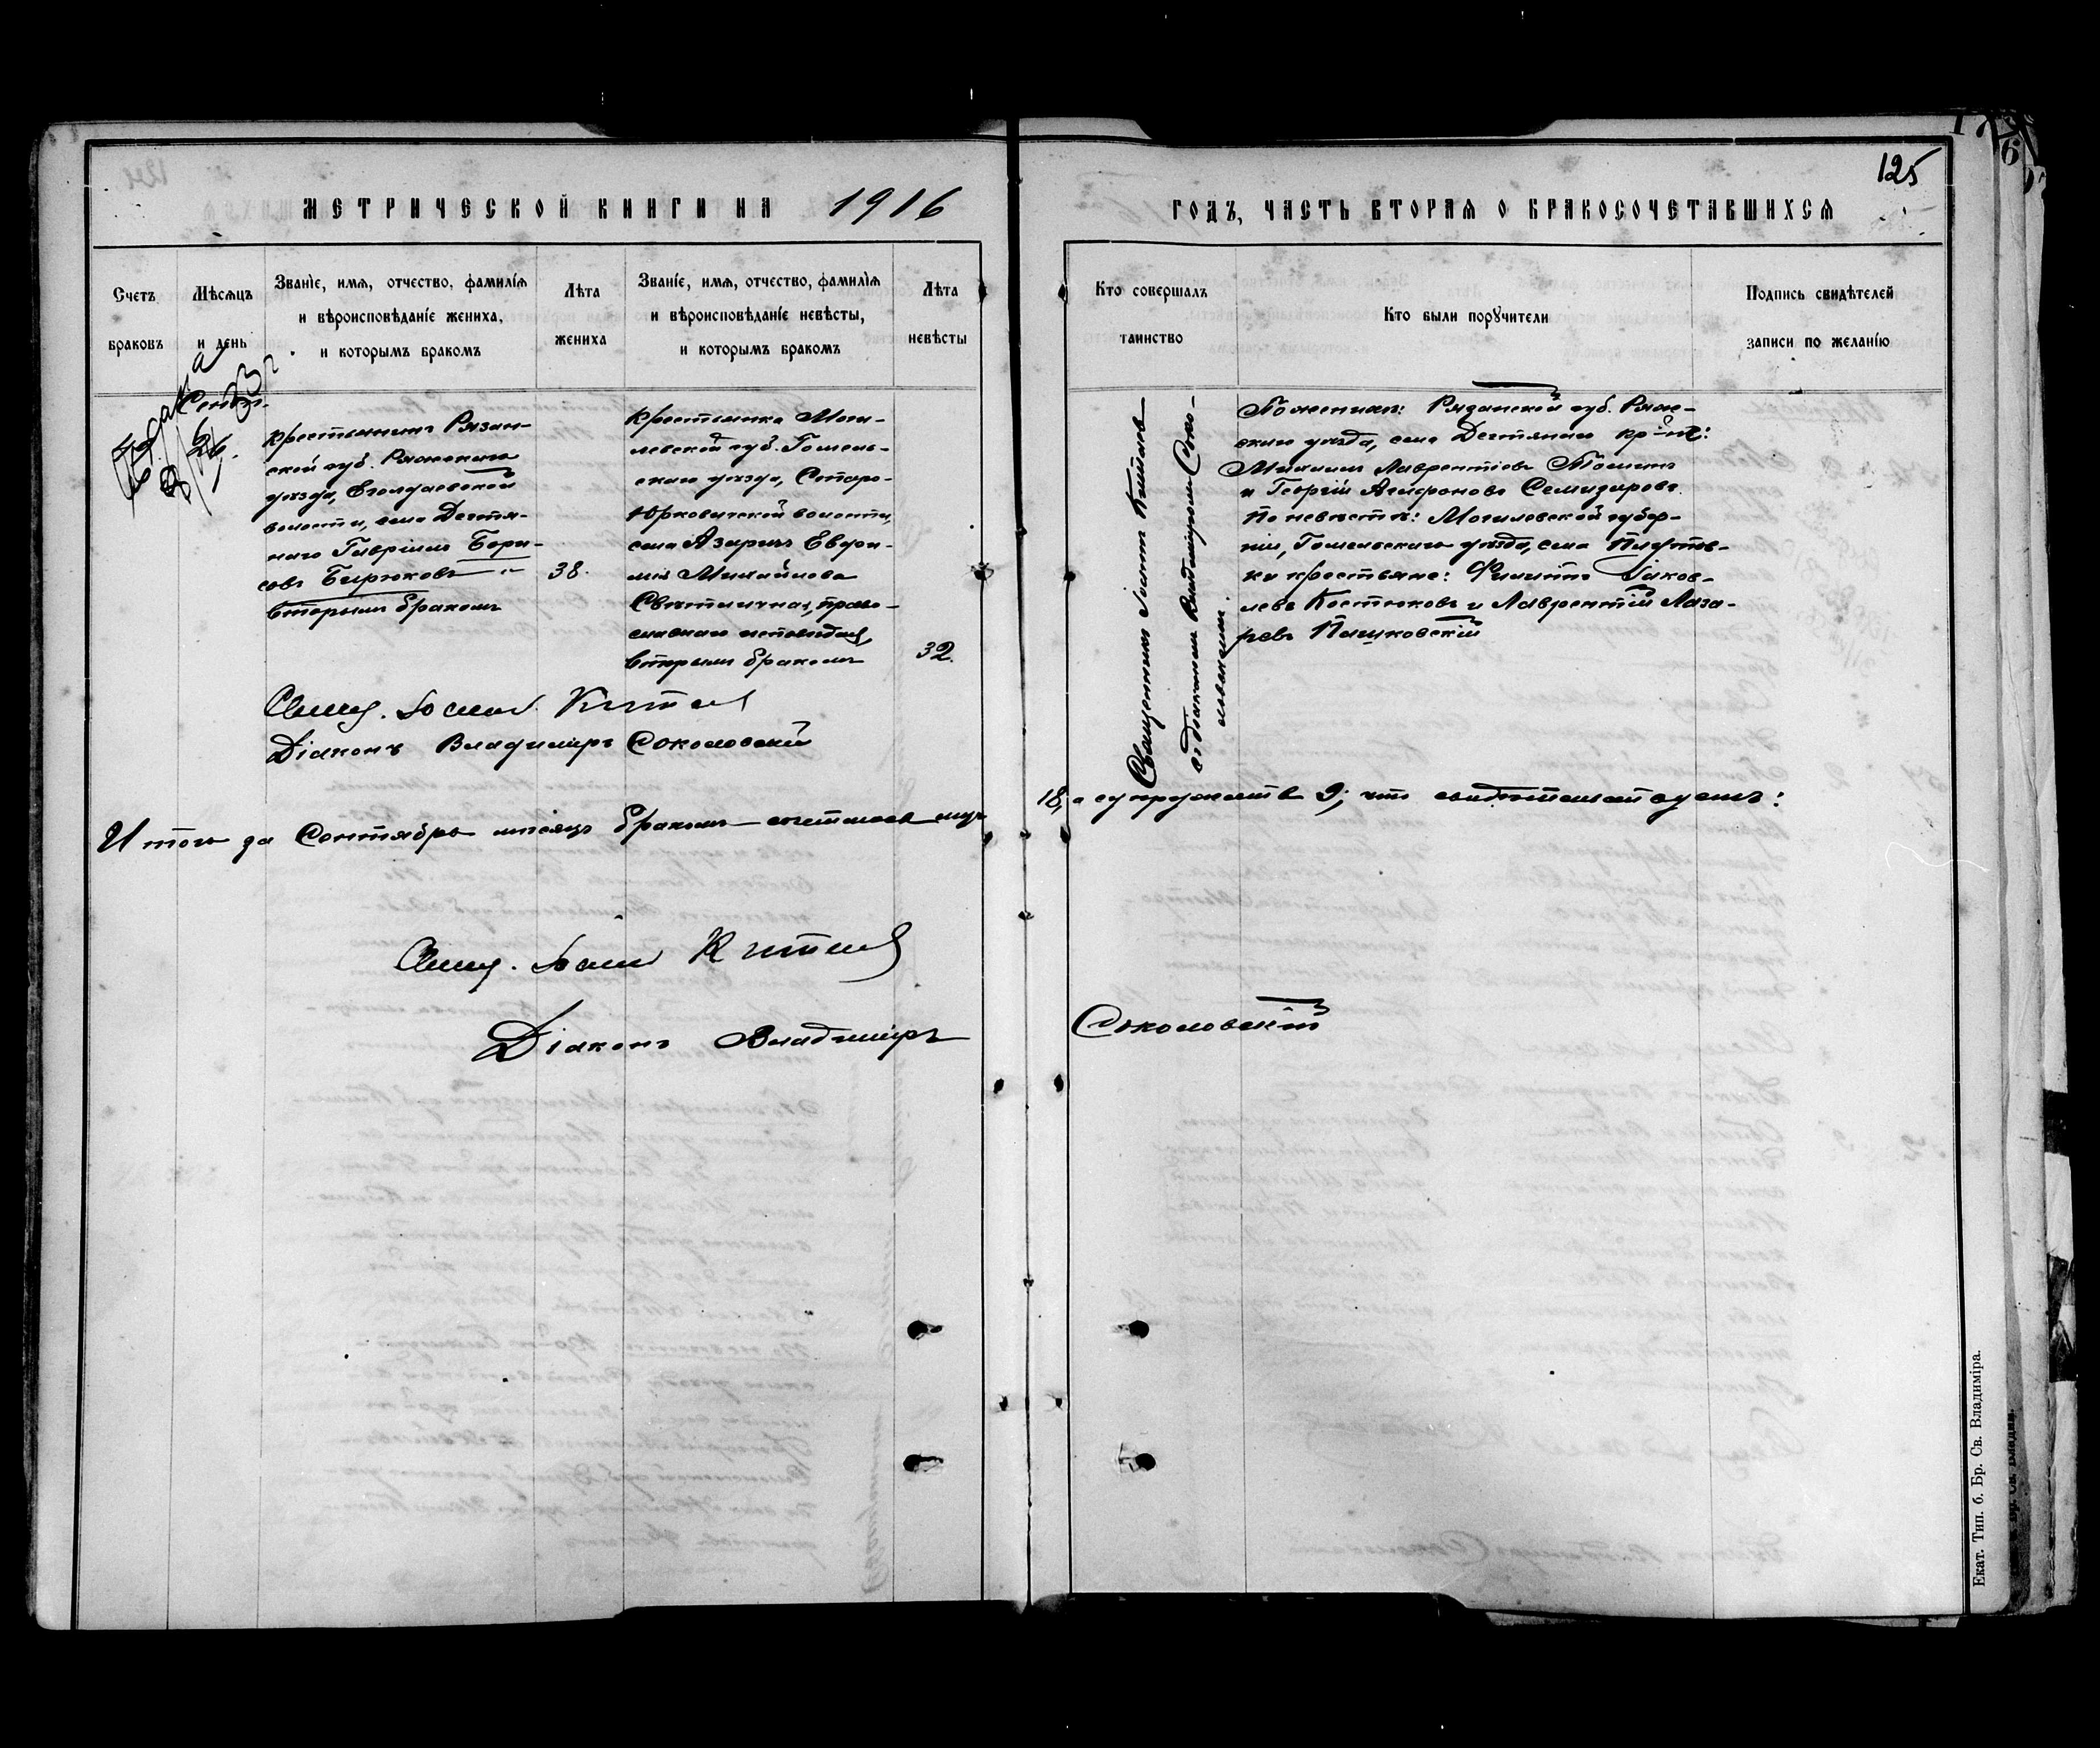 МЕТРИЧЕСКОЙ КНИГИ НА 1916
ГОДЪ, ЧАСТЬ ВТОРАЯ О БРАКОСОЧЕТАВШИХСЯ
125
Счетъ
браковъ
Мѣсяцъ
и день
Званіе, имя, отчество, фамилія
и вѣроисповѣданіе жениха,
и которымъ бракомъ
Лѣта
жениха
Званіе, имя, отчество, фамилія
и вѣроисповѣданіе невѣсты,
и которымъ бракомъ
Лѣта
невѣсты
Кто совершалъ
таинство
Кто были поручители
Подпись свидѣтелей
записи по желанію
26.
Крестьянинъ Рязан-
ской губ. Ряжскаго
уѣзда, Еголдаевской
волости, села Дегтя-
наго Гавріилъ Бори-
совъ Бирюковъ
вторымъ бракомъ
38.
Крестьянка Моги-
левской губ. Гомель-
скаго уѣзда, Старо-
Юрковичской волости,
села Азаричъ Евфи-
мія Михайлова
Свѣтличная, право-
славнаго исповѣданія,
вторымъ бракомъ
32.
Священникъ Іоаннъ Китаевъ
съ діакономъ Владиміромъ Соко-
ловскимъ.
По женихѣ: Рязанской губ. Ряж-
скаго уѣзда, села Дегтянаго кр-не:
Михаилъ Лаврентіевъ
и Георгій Агафоновъ Семизаровъ.
По невѣстѣ: Могилевской губер-
ніи, Гомельскаго уѣзда, села
крестьяне: Филиппъ Іаков-
левъ Костюковъ и Лаврентій Лаза-
ревъ Пашковскій
Свящ. Іоаннъ Китаевъ
Діаконъ Владиміръ Соколовскій
Итого за Сентябрь мѣсяцъ бракомъ сочеталось лицъ
18, а супружествъ 9; что свидѣтельствуемъ:
Свящ. Іоаннъ Китаевъ
Діаконъ Владиміръ
Соколовскій
Екат. Тип. б. Бр. Св. Владиміра.